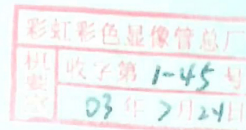 彩虹彩色显像管总厂
收字第 1-45 号
03 年 7月24日